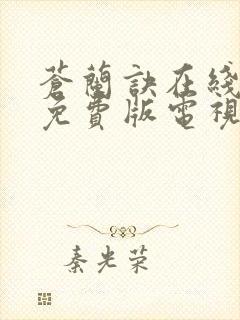 蒼蘭訣在綫
免費版電視
秦光荣